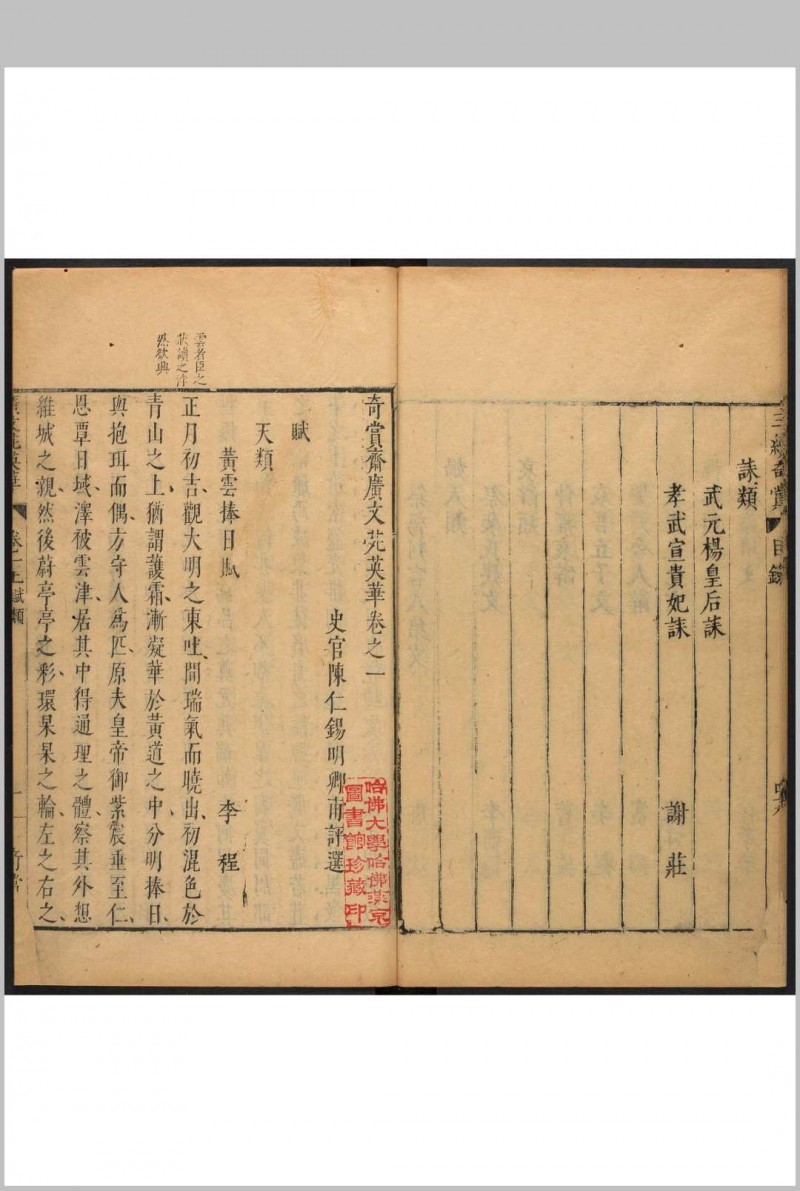 三續奇賞 目錄
誄類
武元楊皇后誄
孝武宣貴妃誄 謝莊
奇賞齋廣文苑英華卷之一
史官陳仁錫明卿甫評選
賦
天類
黃雲捧日賦 李程
正月初吉、觀大明之東吐、開瑞氣而曉出、初混色於
青山之上、猶謂護霜、漸凝華於黃道之中、分明捧日、
與抱珥而偶、方守人爲匹、原夫皇帝御紫震垂至仁、
恩覃日域、澤被雲津、居其中得通理之體、察其外想
維城之親、然後蔚亭亭之彩、環杲杲之輪、左之右之、
雲者臣之
狀讀之浮
然欲興
廣文苑英華 卷一上賦類
哈佛大學哈佛漢京
圖書館珍藏印